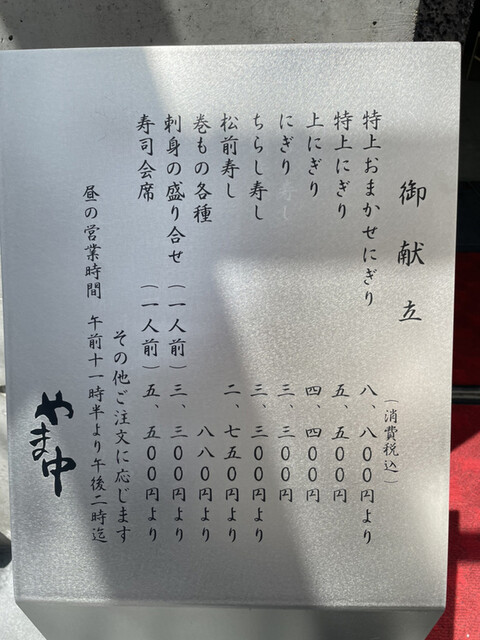 御献立
（消費税込）
特上おまかせにぎり 八、八００円より
特上にぎり 五、五００円
上にぎり 四、四００円
にぎり寿し 三、三００円
ちらし寿し 三、三００円より
松前寿し 二、七五０円より
巻もの各種 八八０円より
刺身の盛り合せ（一人前）三、三００円より
寿司会席（一人前）五、五００円より
その他ご注文に応じます
昼の営業時間 午前十一時半より午後二時迄
やま中